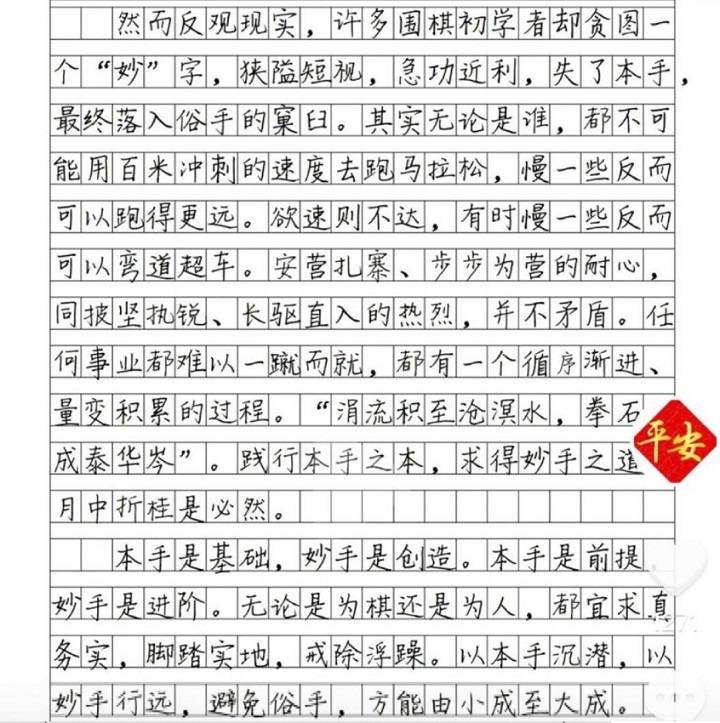 然而反观现实，许多围棋初学者却贪图一
个“妙”字，狭隘短视，急功近利，失了本手，
最终落入俗手的窠臼。其实无论是谁，都不可
能用百米冲刺的速度去跑马拉松，慢一些反而
可以跑得更远。欲速则不达，有时慢一些反而
可以弯道超车。安营扎寨、步步为营的耐心，
同披坚执锐、长驱直入的热烈，并不矛盾。任
何事业都难以一蹴而就，都有一个循序渐进、
量变积累的过程。“涓流积至沧溟水，拳石
平安
成泰华岑”。践行本手之本，求得妙手之道
月中折桂是必然。
本手是基础，妙手是创造。本手是前提，
妙手是进阶。无论是为棋还是为人，都宜求真
1271
务实，脚踏实地，戒除浮躁。以本手沉潜，以
妙手行远，避免俗手，方能由小成至大成。